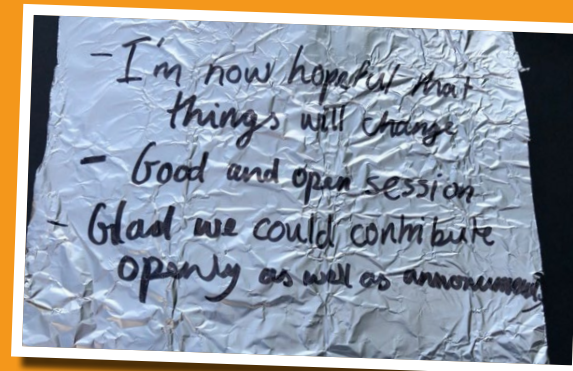 - I'm now hopeful that
things will change
- Good and open session
- Glad we could contribute
openly as well as